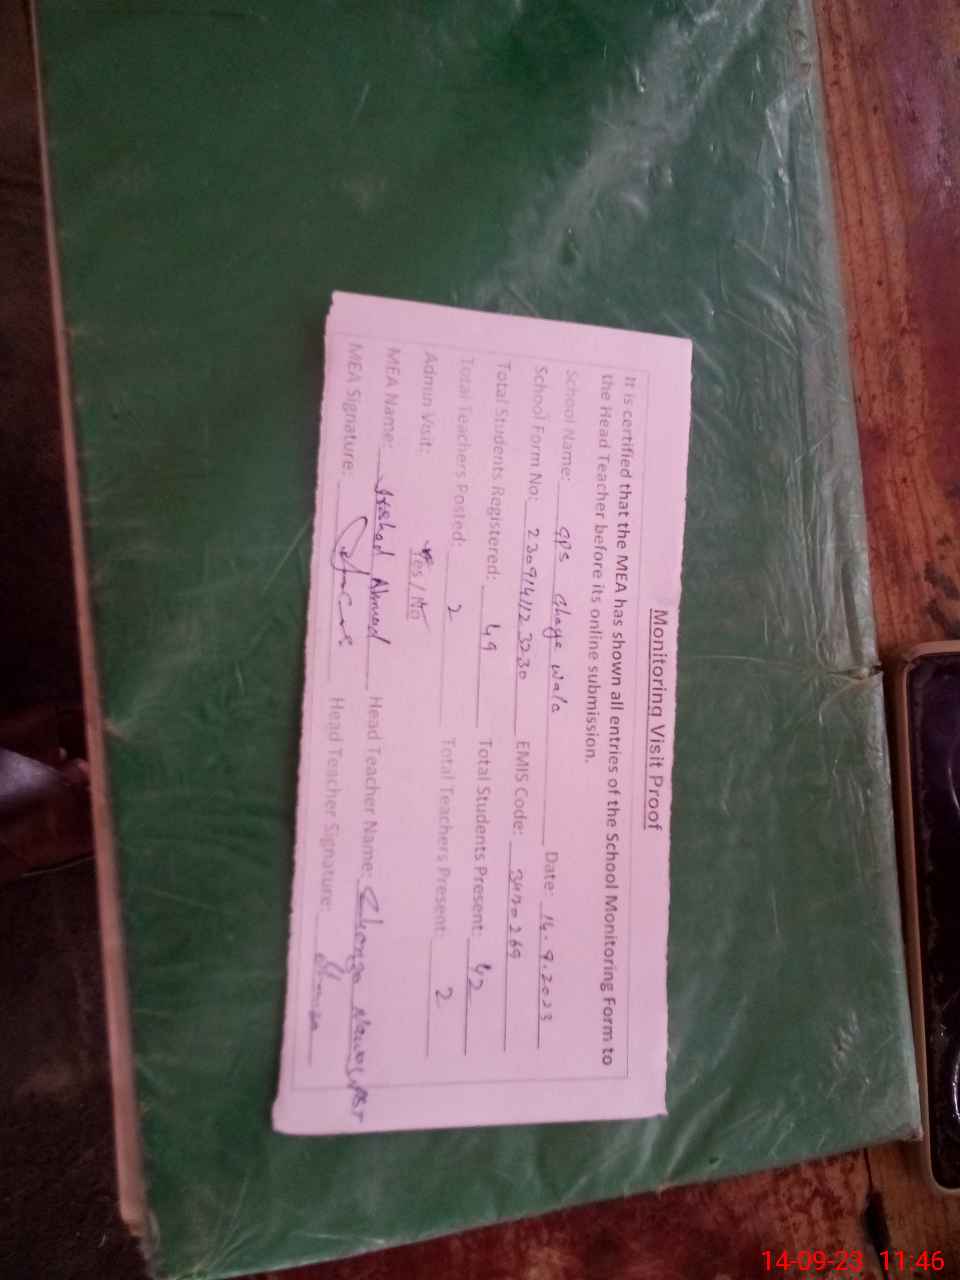 Monitoring Visit Proof
It is certified that the MEA has shown all entries of the School Monitoring Form to
the Head Teacher before its online submission.
School Name: GPS Wala Date: 14.9.2023
School Form No: EMIS Code:
Total Students Registered: 49 Total Students Present: 42
Total Teachers Posted: 2 Total Teachers Present: 2
Admin Visit: Yes / No
MEA Name: Irshad Ahmad Head Teacher Name:
MEA Signature: Head Teacher Signature:
14-09-23 11:46